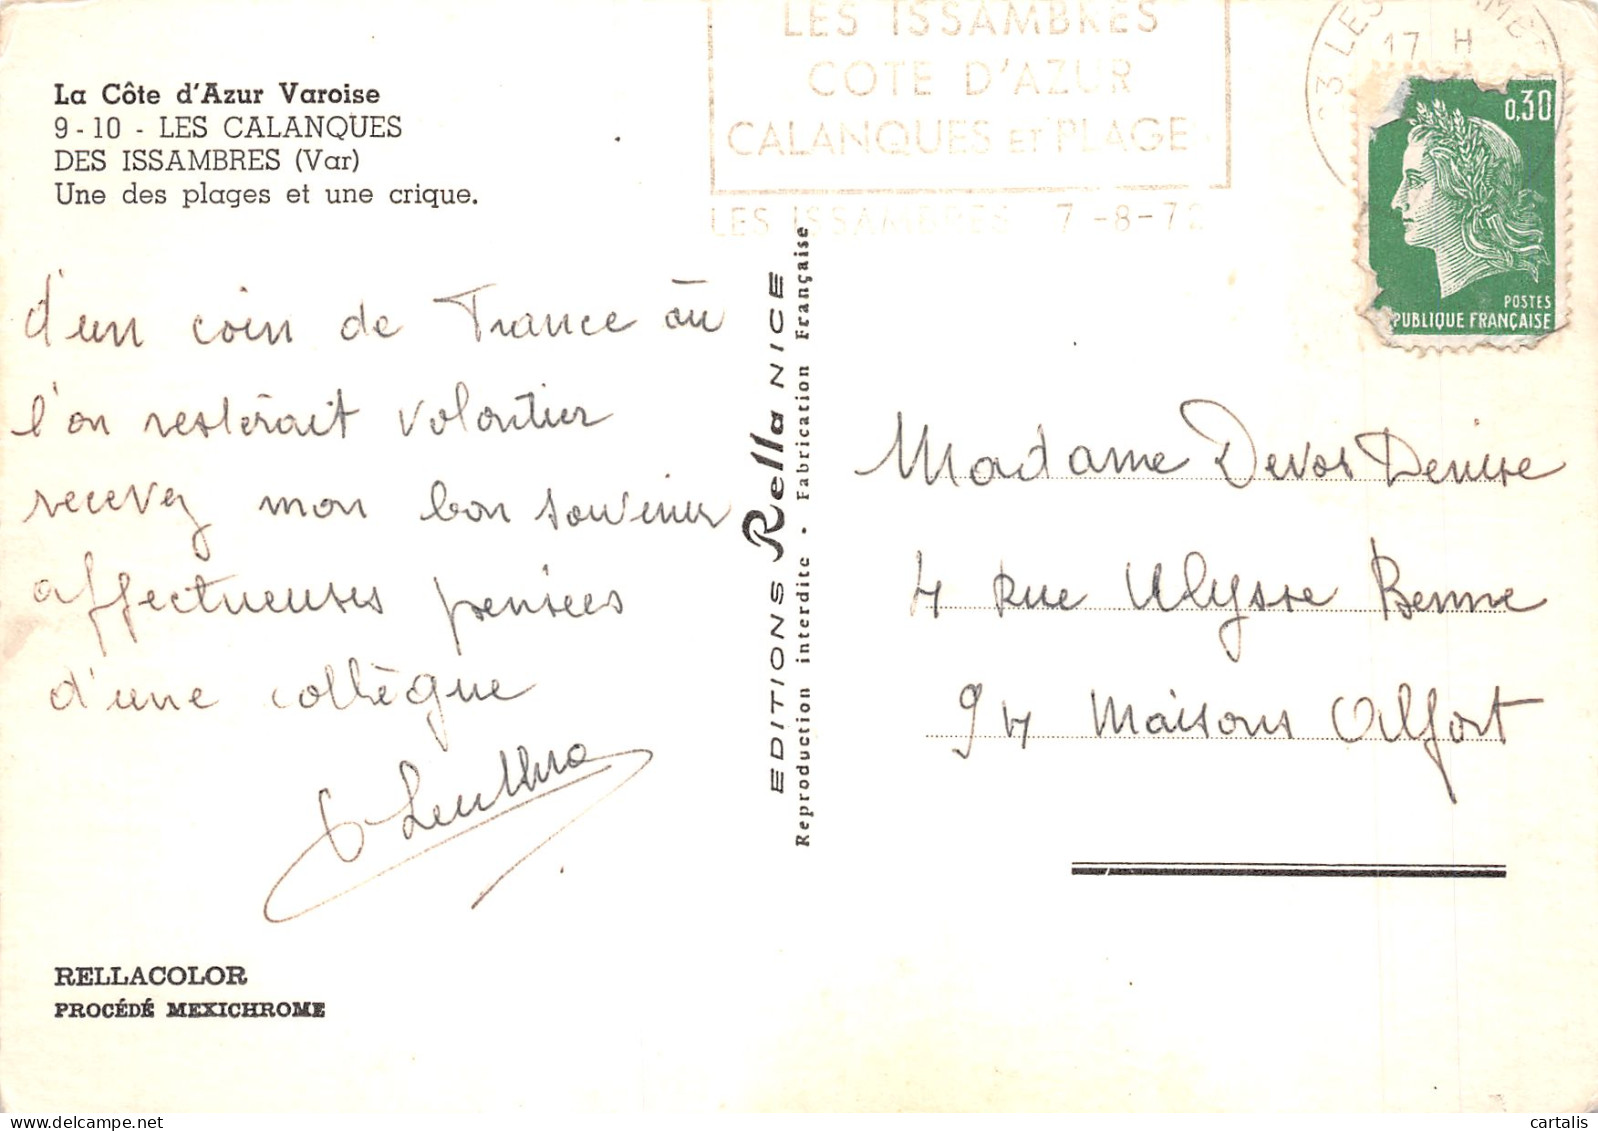 La Côte d'Azur Varoise
9-10 - LES CALANQUES
DES ISSAMBRES (Var)
Une des plages et une crique.
LES ISSAMBRES
COTE D'AZUR
CALANQUES ET PLAGE
LES ISSAMBRES 7-8-72
83 LES
17 H
0,30
POSTES
PUBLIQUE FRANÇAISE
d'un coin de France où
l'on resterait volontier
recevez mon bon souvenir
affectueuses pensées
d'une collègue
EDITIONS Rella NICE
Reproduction interdite · Fabrication Française
Madame Devos Denise
4 Rue Ulysse Benne
94 Maisons Alfort
RELLACOLOR
PROCÉDÉ MEXICHROME
cartalis